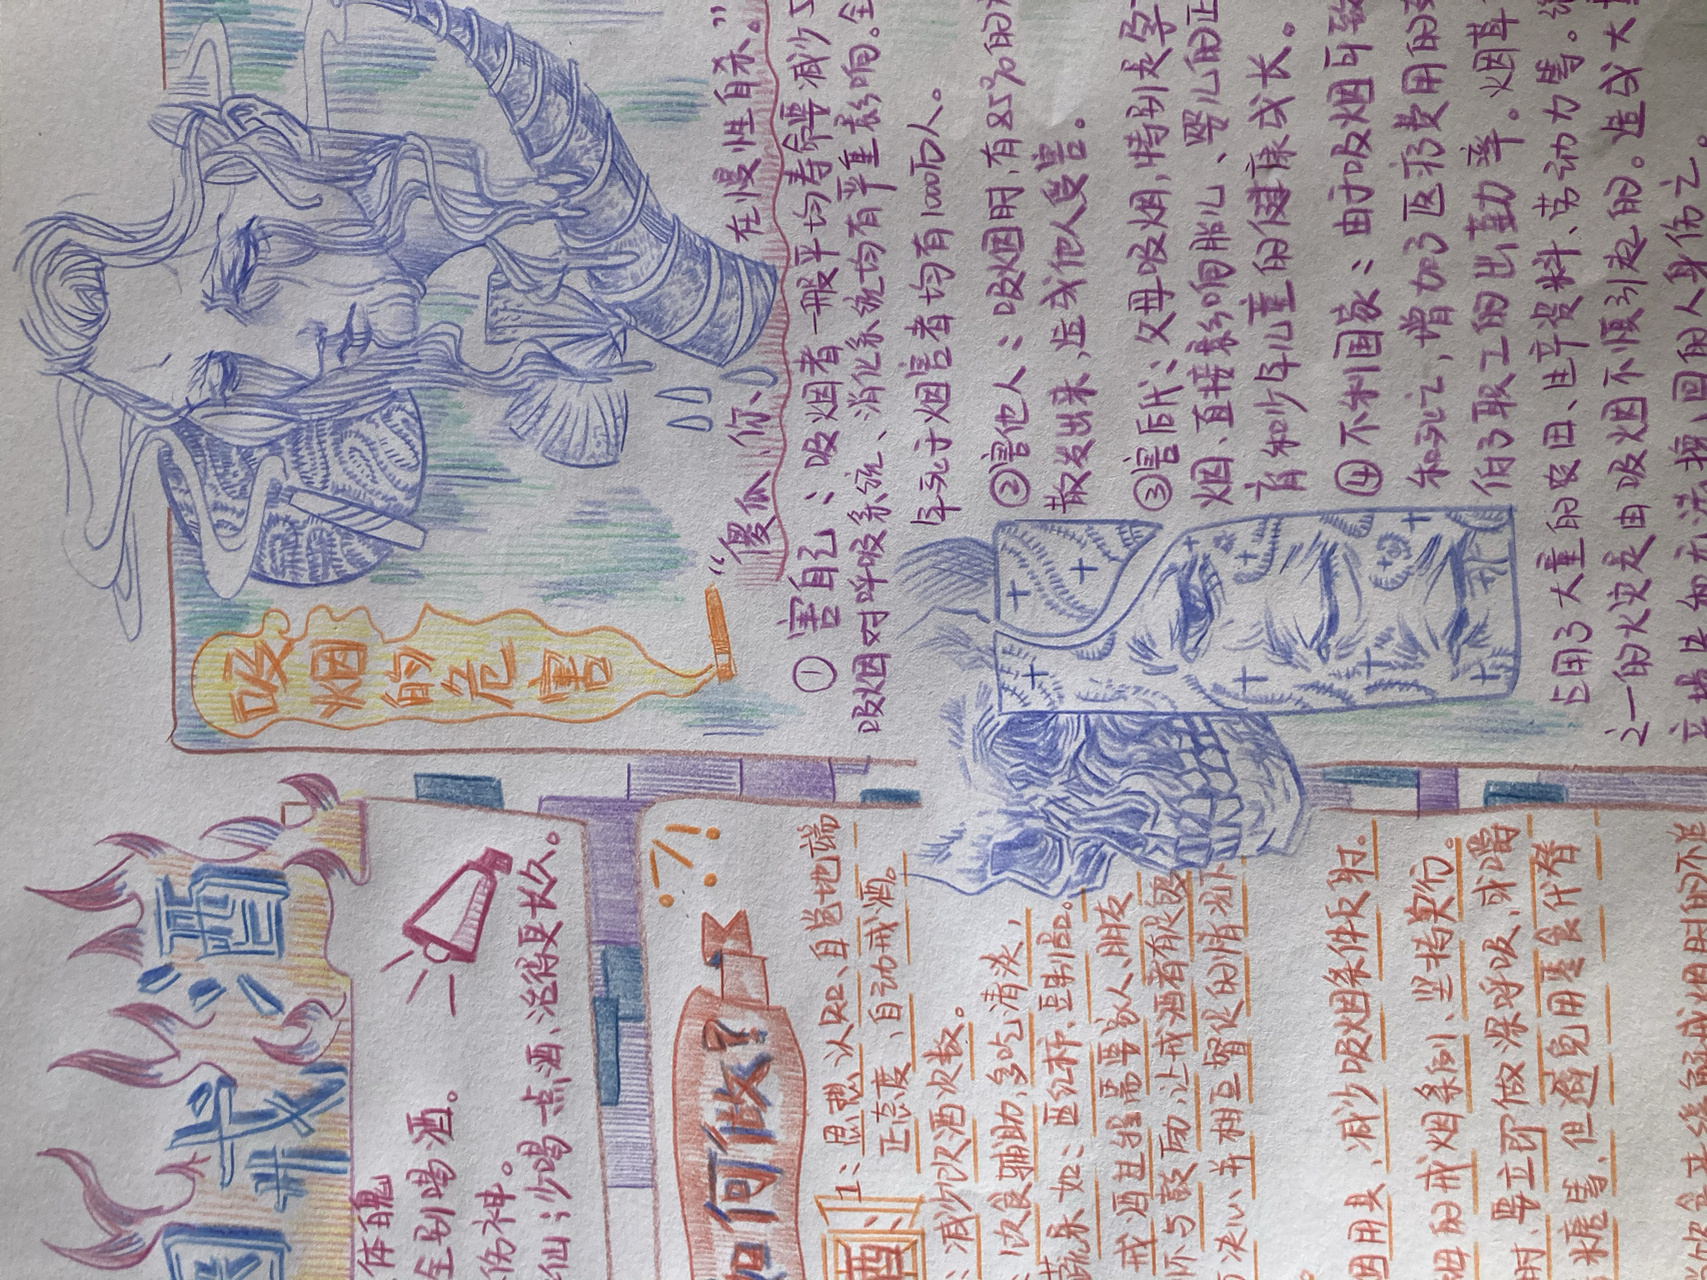 戒 酒
体魄
全别喝酒。
伤神。
仙;少喝一点酒,活得更长久。
如何做?
酒
1:思想认知、自觉地端
正态度、自动戒酒。
:减少饮酒次数。
:饮食辅助,多吃清淡,
蔬果、如:西红柿、豆制品。
戒酒进程需要家人、朋友
怀与鼓励,让戒酒者有
决心、并相互督促的情况下
烟用具,减少吸烟条件反射.
细的戒烟条例、坚持实行。
时,要立即做深呼吸、或嚼
糖等、但避免用零食代替
吸烟的危害
“傻瓜、你、在慢性自杀。”
①害自己:吸烟者一般平均寿命要减少5
吸烟对呼吸系统、消化系统均有严重影响.全
年死于烟害者均有100万人。
②害他人:吸烟时,有85%的
散发出来,造成他人受害。
③害后代:父母吸烟,特别是孕
烟、直接影响胎儿、婴儿的正
育和少年儿童的健康成长。
④不利国家:由于吸烟可致
和死亡,增加了医疗费用的
们了职工的出勤率。烟草
占用了大量的农田、生产资料、劳动力等。
之一的火灾是由吸烟不慎引起的。造成大
回的人身伤亡。